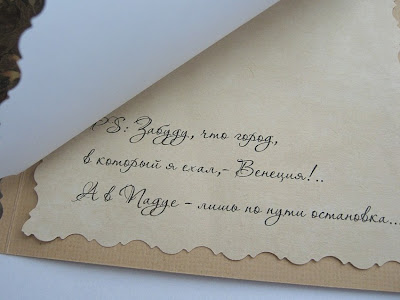 PS: Забуду, что город,
в который я ехал,- Венеция!..
А в Падуе - лишь по пути остановка...